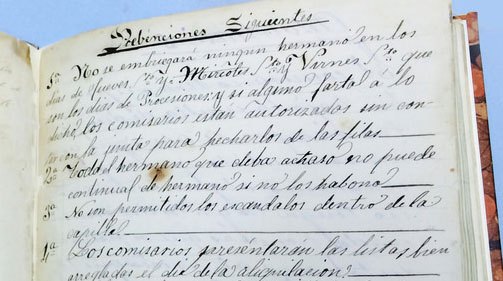 Prebenciones Siguientes
1ª No se embriegará ningun hermano en los
dias de Jueves Sto y Miercoles Sto y Virnes Sto que
son los dias de Procesiones y si algimo farta a lo
dicho, los comisarios están autorizados sin con-
tar con la junta para hecharlos de las filas
2ª Todo el hermano que deba achaso no puede
continual de hermano si no los habona
3ª No son permitidos los escandalos dentro de la
capilla
4ª Los comisarios presentaran las listas bien
arregladas el dia de la